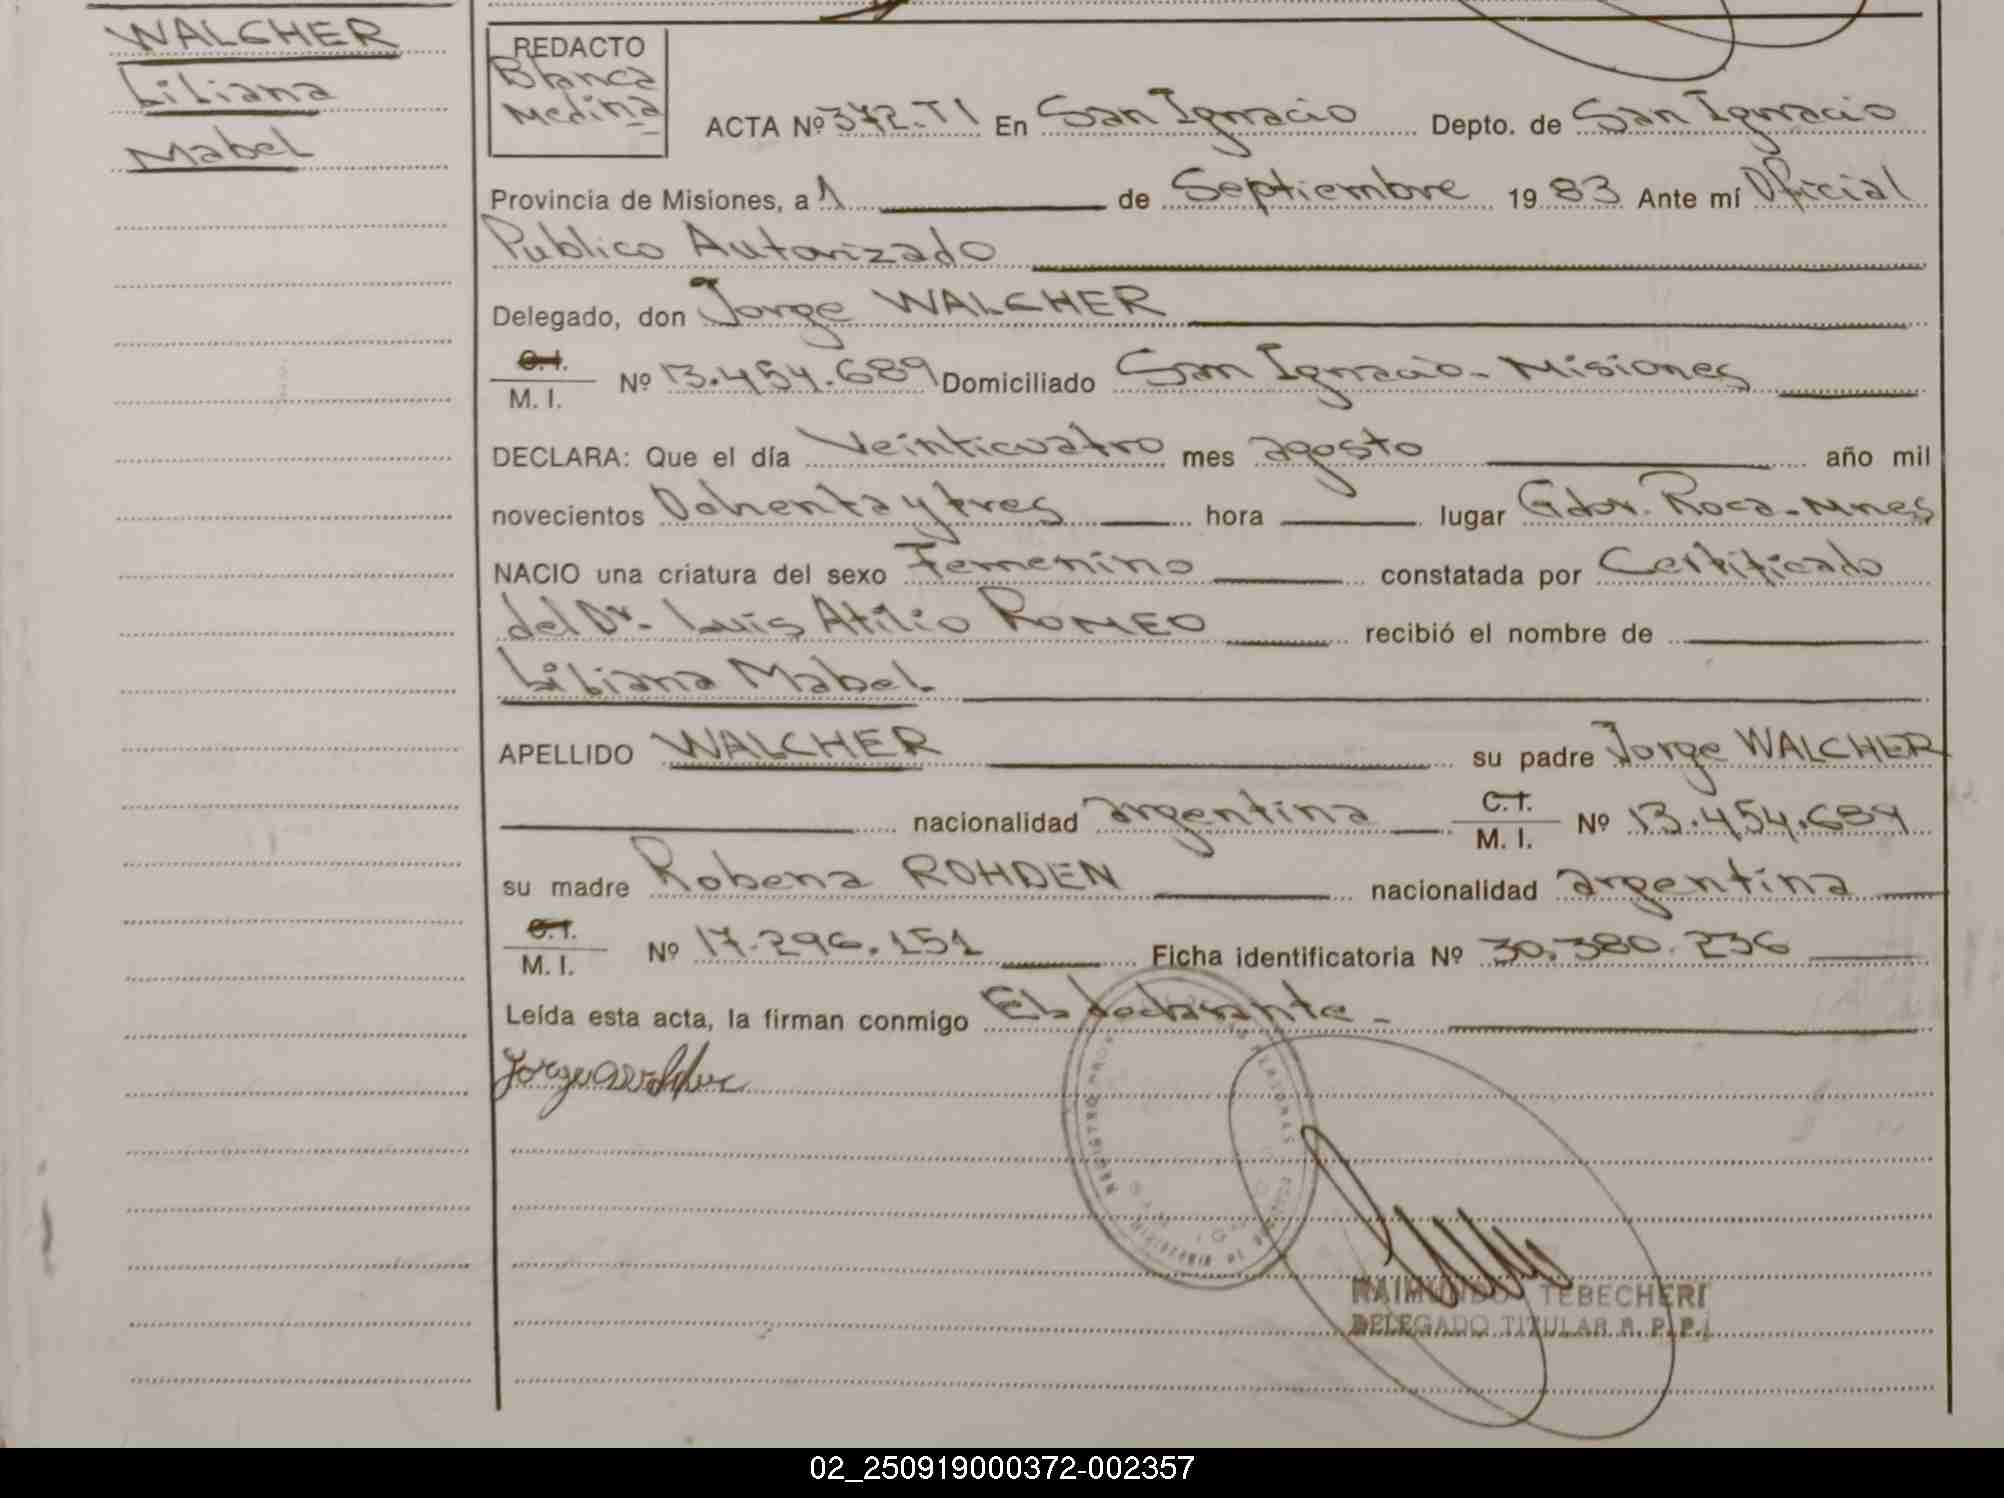 WALCHER
Liliana
Mabel
REDACTO
Blanca
Medina
ACTA Nº 372.TI En San Ignacio Depto. de San Ignacio
Provincia de Misiones, a 1 de Septiembre 19 83 Ante mí Oficial
Publico Autorizado
Delegado, don Jorge WALCHER
C.I.
M. I. Nº 13.454.689 Domiciliado San Ignacio - Misiones
DECLARA: Que el día Veinticuatro mes agosto año mil
novecientos Ochenta y tres hora lugar Gdor. Roca - Mnes
NACIO una criatura del sexo Femenino constatada por Certificado
del Dr. Luis Atilio ROMEO recibió el nombre de
Liliana Mabel
APELLIDO WALCHER su padre Jorge WALCHER
nacionalidad argentina C.I.
M. I. Nº 13.454.689
su madre Robena ROHDEN nacionalidad argentina
C.I.
M. I. Nº 17.296.151 Ficha identificatoria Nº 30.380.236
Leída esta acta, la firman conmigo El declarante -
Jorge Walcher
RAIMUNDO TEBECHERI
DELEGADO TITULAR R. P. P.
02_250919000372-002357